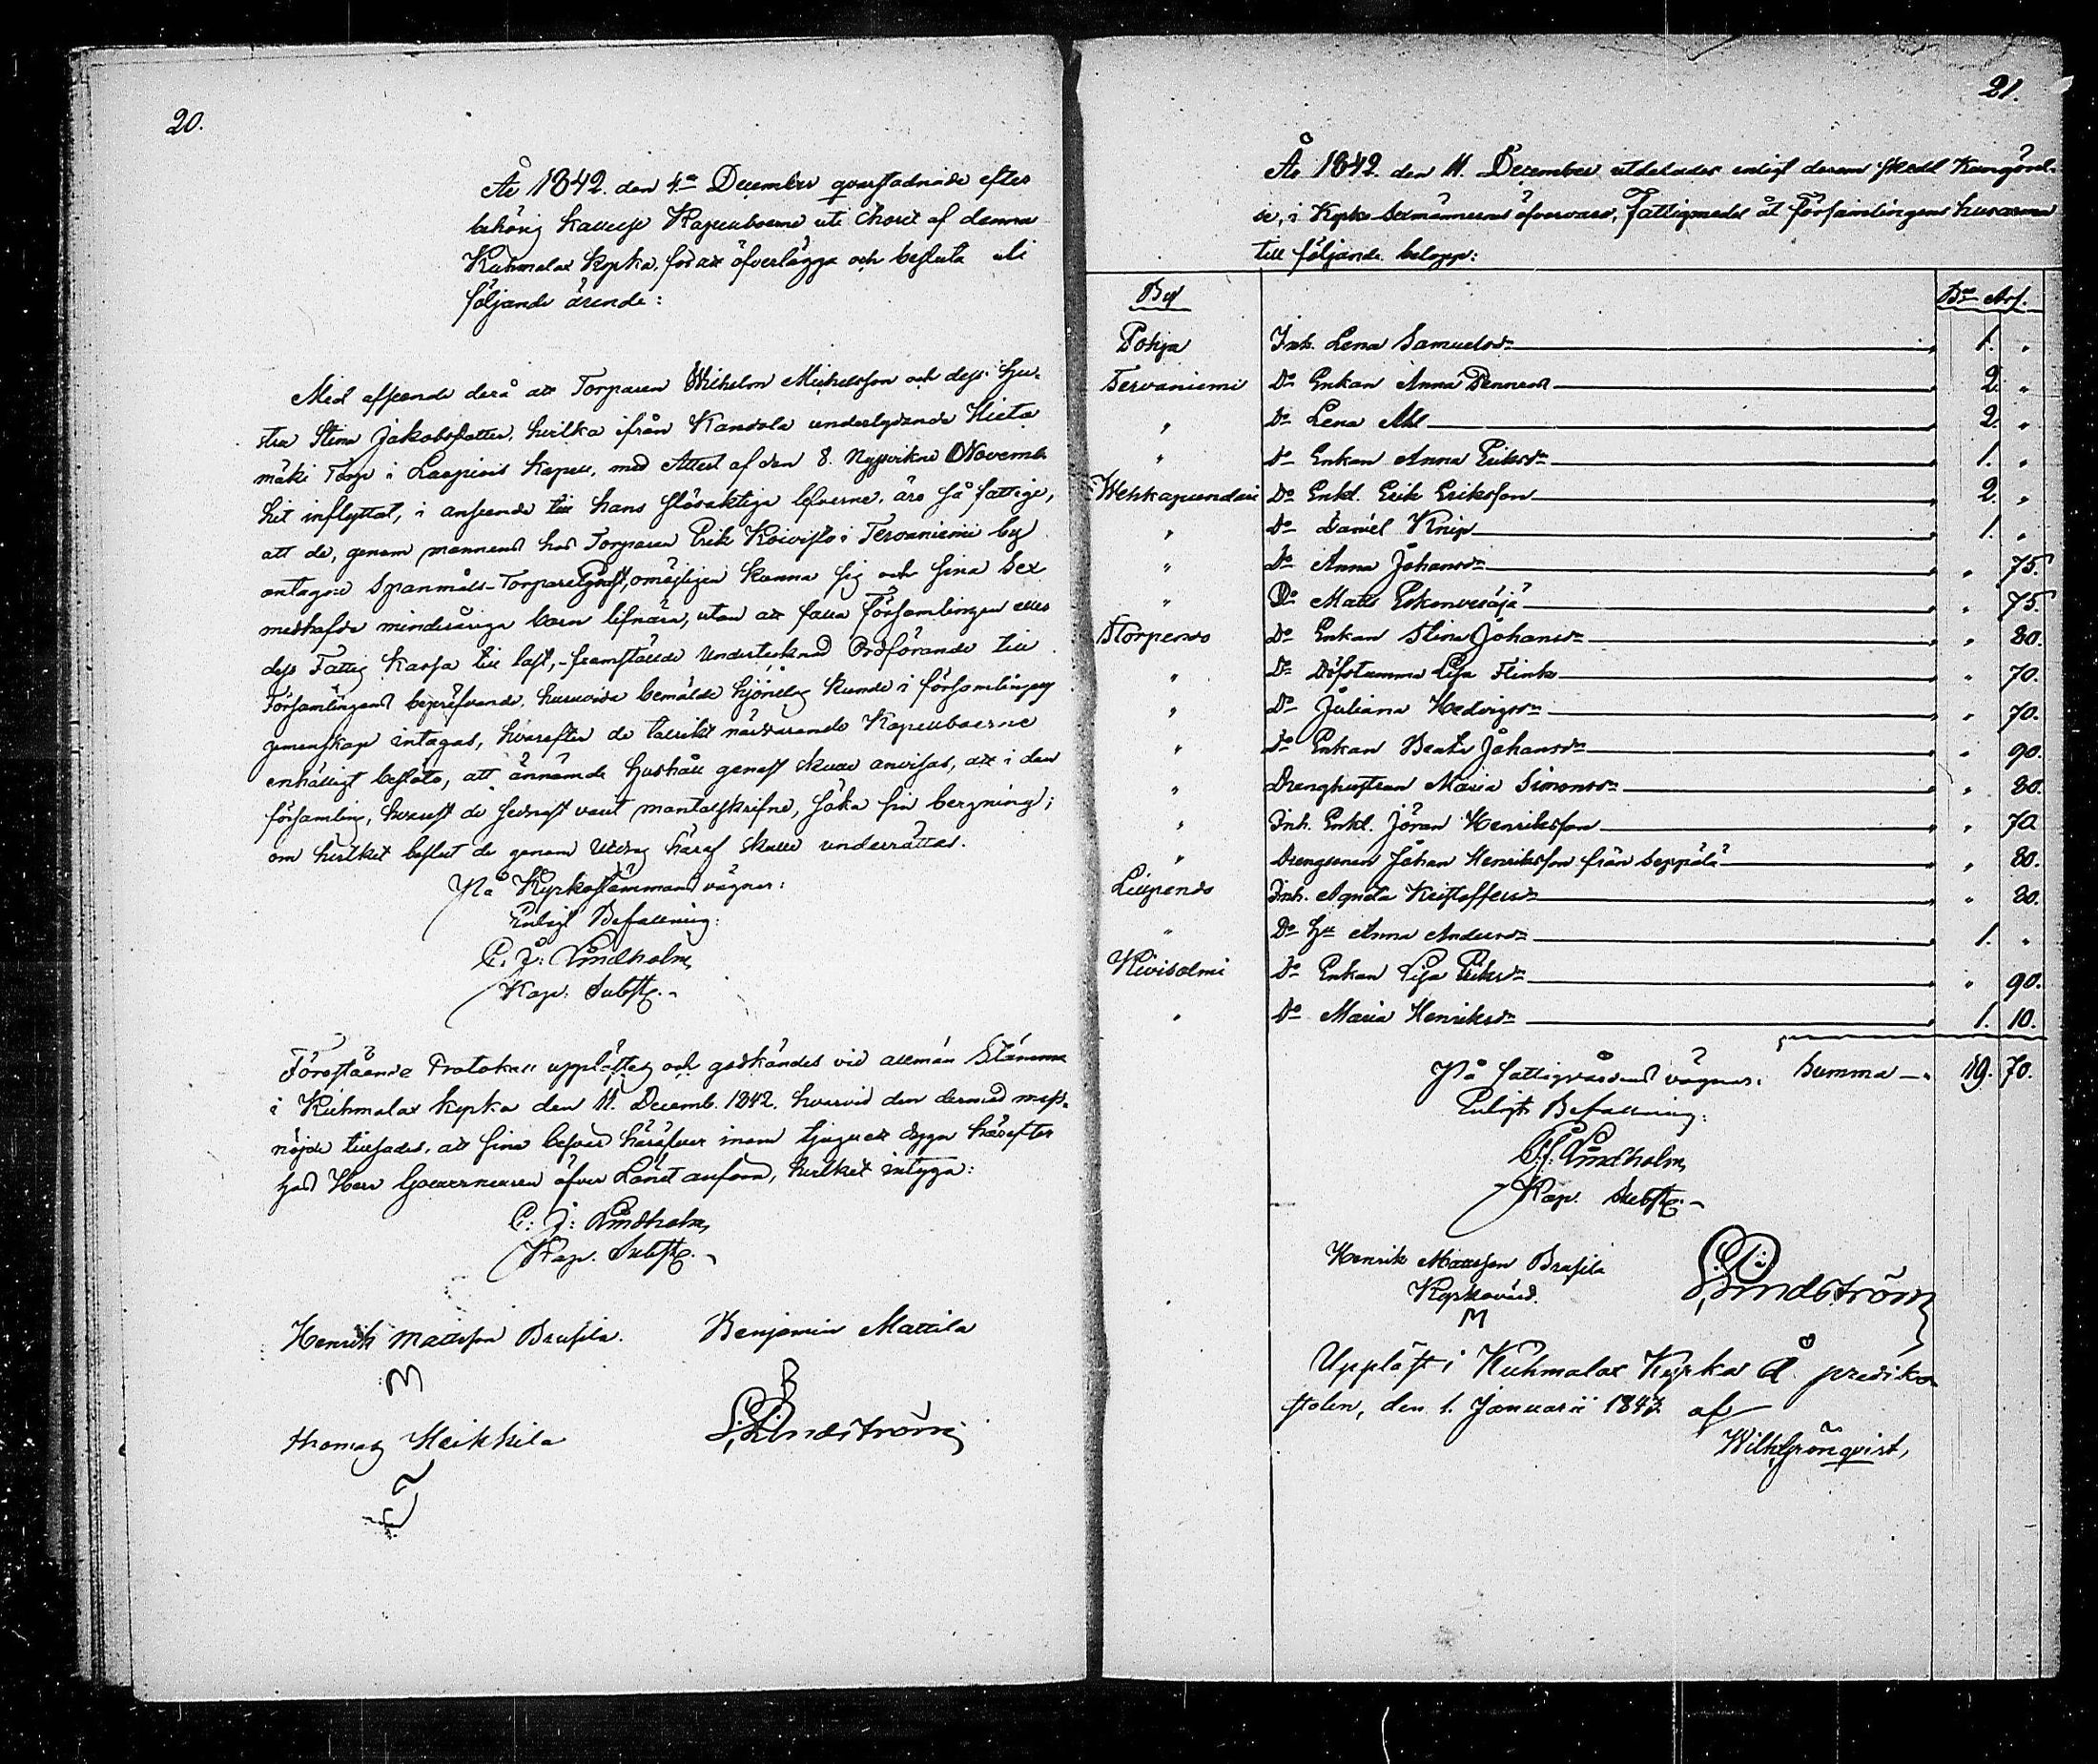 20.
År 1842. den 4:de December qvarstadnade efter
behörig kallelse Kapellboerne uti Choret af denna
Kuhmalax kyrka, för att öfverlägga och besluta uti
följande ärende:
Med afseende derå att Torparen Wilhelm Michelsson och dess hu-
stru Stina Jakobsdotter, hvilka ifrån Kandola underlydande Hieta
mäki Torp i Lappiris kapell, med Attest af den 8. Nyssvikne Novemb.
hit inflyttat, i anseende till hans slösaktiga lefverne, äro så fattige,
att de, genom mannens hos Torparen Erik Koivisto i Tervaniemi by
antagne Spanmåls-Torparelgäst, omöjligen kunna sig och sina Sex
medhafde minderåriga barn lifnära, utan att falla Församlingen eller
dess Fattig Kassa till last, - framställde Undertecknad Ordförande till
Församlingens bepröfvande, huruvida bemälde hjonelag kunde i församlingens
gemenskap intagas, hvarefter de talrikt närvarande Kapellboerne
enhälligt beslöto, att ännämde hushåll genast skulle anvisas, att i den
församling, hvarest de sednast varit mantalsskrifne, söka sin bergning;
om hvilket beslut de genom Utdrag häraf skulle underrättas.
På Kyrkostämmans vägnar:
Enligt Befallning:
C. J: Lindholm,
Kap. Subst. -
Föreståände Protokoll upplästes och godkändes vid allmän Stämma
i Kuhmalax kyrka den 11. Decemb. 1842. hvarvid den dermed miss-
nöjde tillsades, att sina besvär häröfver inom tjugu ett dygn härefter
hos Herr Gouverneuren öfver Länet anföra, hvilket intyga:
C: J: Lindholm,
Kap. Subst. -
Henrik Mattsson Brusila. Benjamin Mattila
M B
Thomas Heikkila Lindström
T
21.
År 1842. den 11. December utdelades enligt derom skedd Kungörel-
se, i Kyrko Sexmännernes öfvervaro, Fattigmedel åt Församlingens husarma
till följande belopp:
By B:co Asf.
Pohja Inh. Lena Samuelsdr 1. "
Tervaniemi Do Enkan Anna Dennerst 2. "
" Do Lena Ahl 2. "
" Do Enkan Anna Eriksdr 1. "
Wehkapundari Do Enkl. Erik Eriksson 2. "
" Do Daniel Knip 1. "
" Do Anna Johansdr " 75.
" Do Matts Eskonvesäjä " 75.
Storpervo Do Enkan Stina Johansdr " 80.
" Do Döfstumma Lisa Flink " 70.
" Do Juliana Hedvigsdr " 70.
" Do Enkan Beata Johansdr " 90.
" Drenghustrun Maria Simonsdr " 80.
" Inh. Enkl. Jöran Henriksson " 70
" Drengsonen Johan Henriksson från Seppälä " 80.
Liipendo Inh. Agneta Kristoffersdr " 80.
" Do Hu Anna Andersdr 1. "
Kivisalmi Do Enkan Lisa Eriksdr " 90.
" Do Maria Henriksdr 1. 10.
På fattigvårdens vägnar: Summa - 19. 70.
Enligt Befallning:
C. J: Lindholm,
Kap. Subst. -
Henrik Mattsson Brusila Lindström
Kyrkovärd.
M
Uppläst i Kuhmalax Kyrka å prediko
stolen, den 1. Januarii 1843 af
Wilh. Grönqvist,